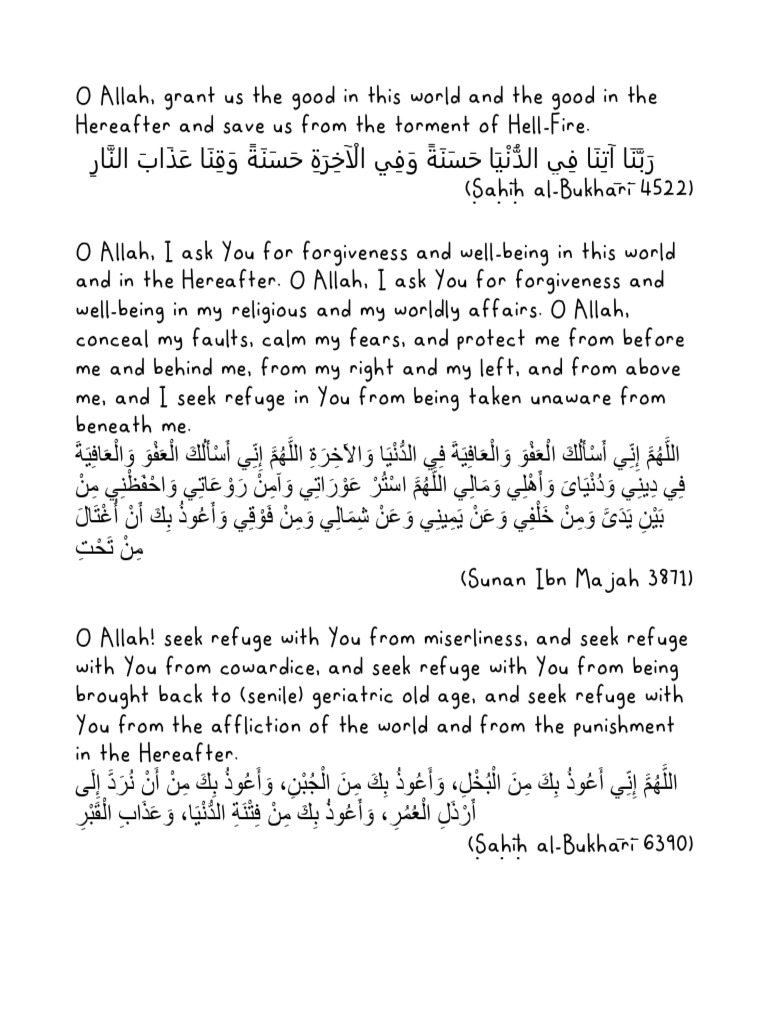 O Allah, grant us the good in this world and the good in the
Hereafter and save us from the torment of Hell-Fire.
رَبَّنَا آتِنَا فِي الدُّنْيَا حَسَنَةً وَفِي الْآخِرَةِ حَسَنَةً وَقِنَا عَذَابَ النَّارِ
(Ṣaḥīḥ al-Bukhārī 4522)
O Allah, I ask You for forgiveness and well-being in this world
and in the Hereafter. O Allah, I ask You for forgiveness and
well-being in my religious and my worldly affairs. O Allah,
conceal my faults, calm my fears, and protect me from before
me and behind me, from my right and my left, and from above
me, and I seek refuge in You from being taken unaware from
beneath me.
اللَّهُمَّ إِنِّي أَسْأَلُكَ الْعَفْوَ وَالْعَافِيَةَ فِي الدُّنْيَا وَالآخِرَةِ اللَّهُمَّ إِنِّي أَسْأَلُكَ الْعَفْوَ وَالْعَافِيَةَ
فِي دِينِي وَدُنْيَاىَ وَأَهْلِي وَمَالِي اللَّهُمَّ اسْتُرْ عَوْرَاتِي وَآمِنْ رَوْعَاتِي وَاحْفَظْنِي مِنْ
بَيْنِ يَدَىَّ وَمِنْ خَلْفِي وَعَنْ يَمِينِي وَعَنْ شِمَالِي وَمِنْ فَوْقِي وَأَعُوذُ بِكَ أَنْ أُغْتَالَ
مِنْ تَحْتِ
(Sunan Ibn Majah 3871)
O Allah! seek refuge with You from miserliness, and seek refuge
with You from cowardice, and seek refuge with You from being
brought back to (senile) geriatric old age, and seek refuge with
You from the affliction of the world and from the punishment
in the Hereafter.
اللَّهُمَّ إِنِّي أَعُوذُ بِكَ مِنَ الْبُخْلِ، وَأَعُوذُ بِكَ مِنَ الْجُبْنِ، وَأَعُوذُ بِكَ مِنْ أَنْ نُرَدَّ إِلَى
أَرْذَلِ الْعُمُرِ، وَأَعُوذُ بِكَ مِنْ فِتْنَةِ الدُّنْيَا، وَعَذَابِ الْقَبْرِ
(Ṣaḥīḥ al-Bukhārī 6390)